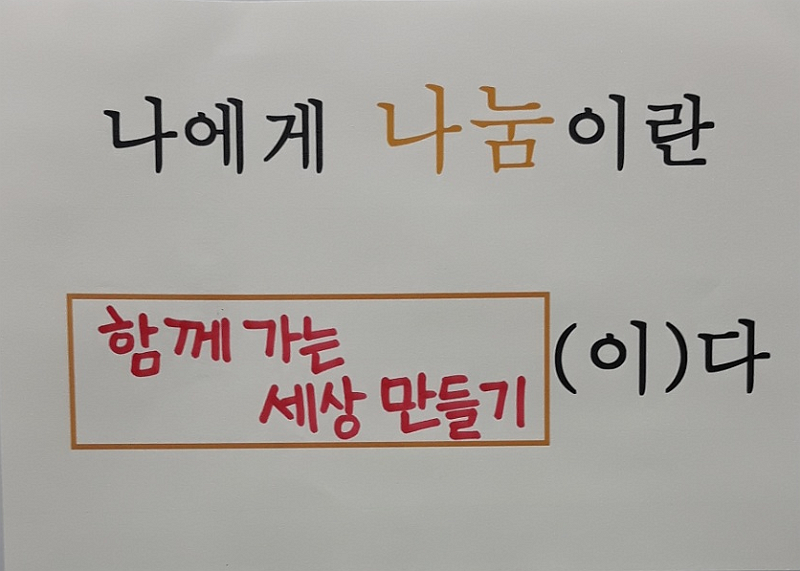 나에게 나눔이란
함께 가는
세상 만들기
(이)다